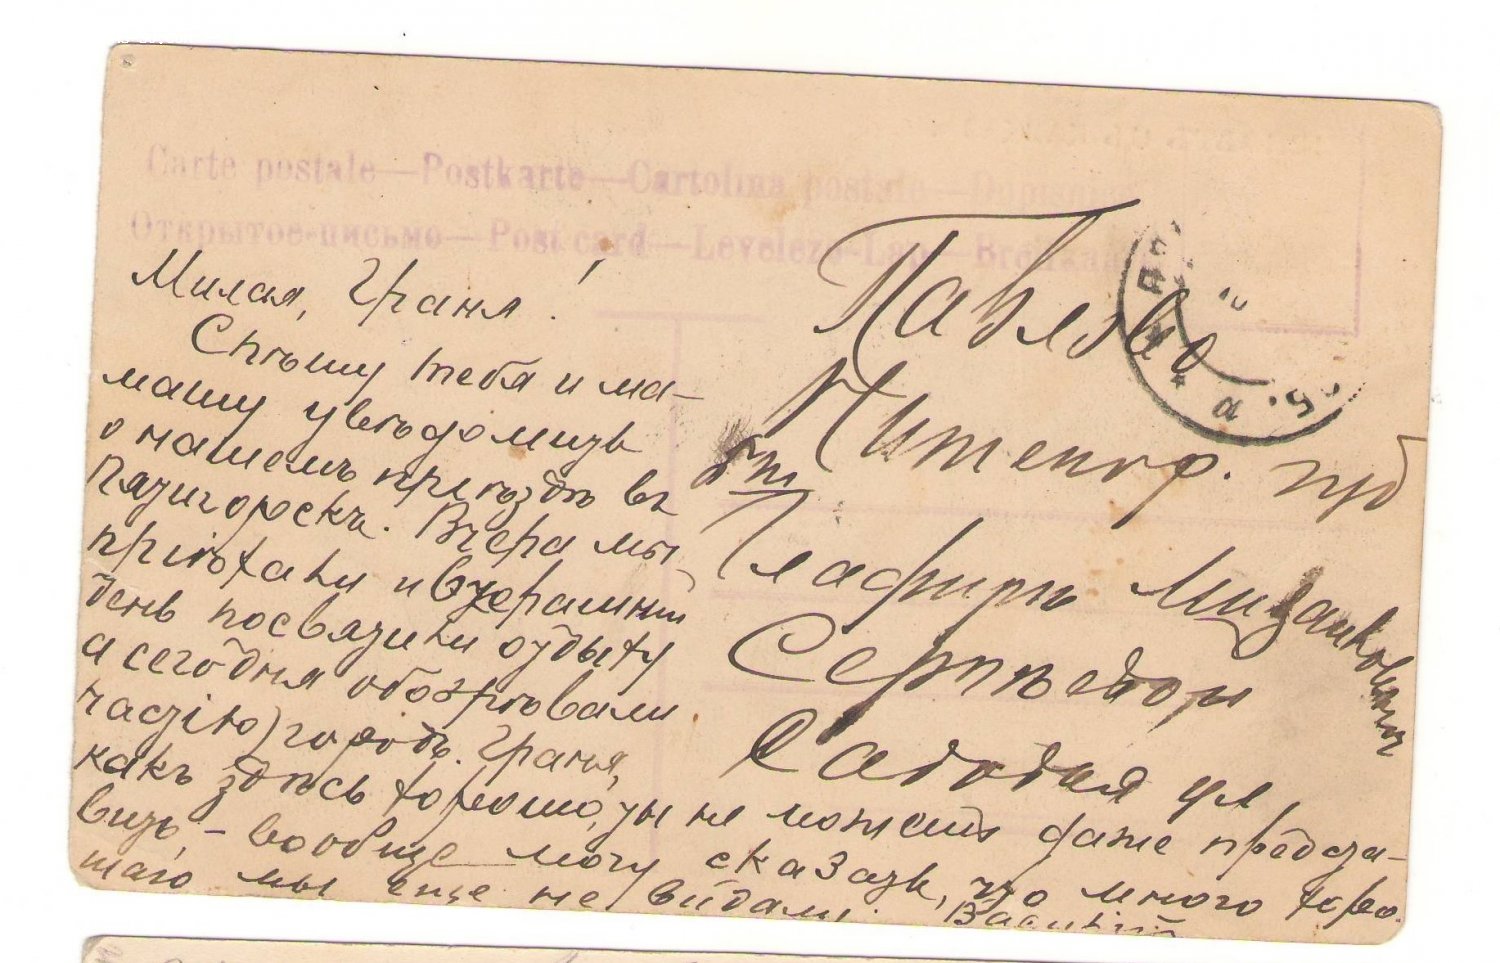 Carte postale—Postkarte—Cartolina postale—
Открытое-письмо—Post card—Levelező-Lap—
Милая, Граня!
Спѣшу тебя и ма-
машу увѣдомить
о нашемъ пріѣздѣ въ
Пятигорскъ. Вчера мы
пріѣхали и вчерашній
день посвятили отдыху
а сегодня обозрѣвали
частію городъ. Граня,
какъ здѣсь хорошо, ты не можешь даже предста-
вить, – вообще могу сказать, что много хоро-
шаго мы еще не видали.
Павлово
Нижегор. губ
Глафирѣ
Садовая ул,
а